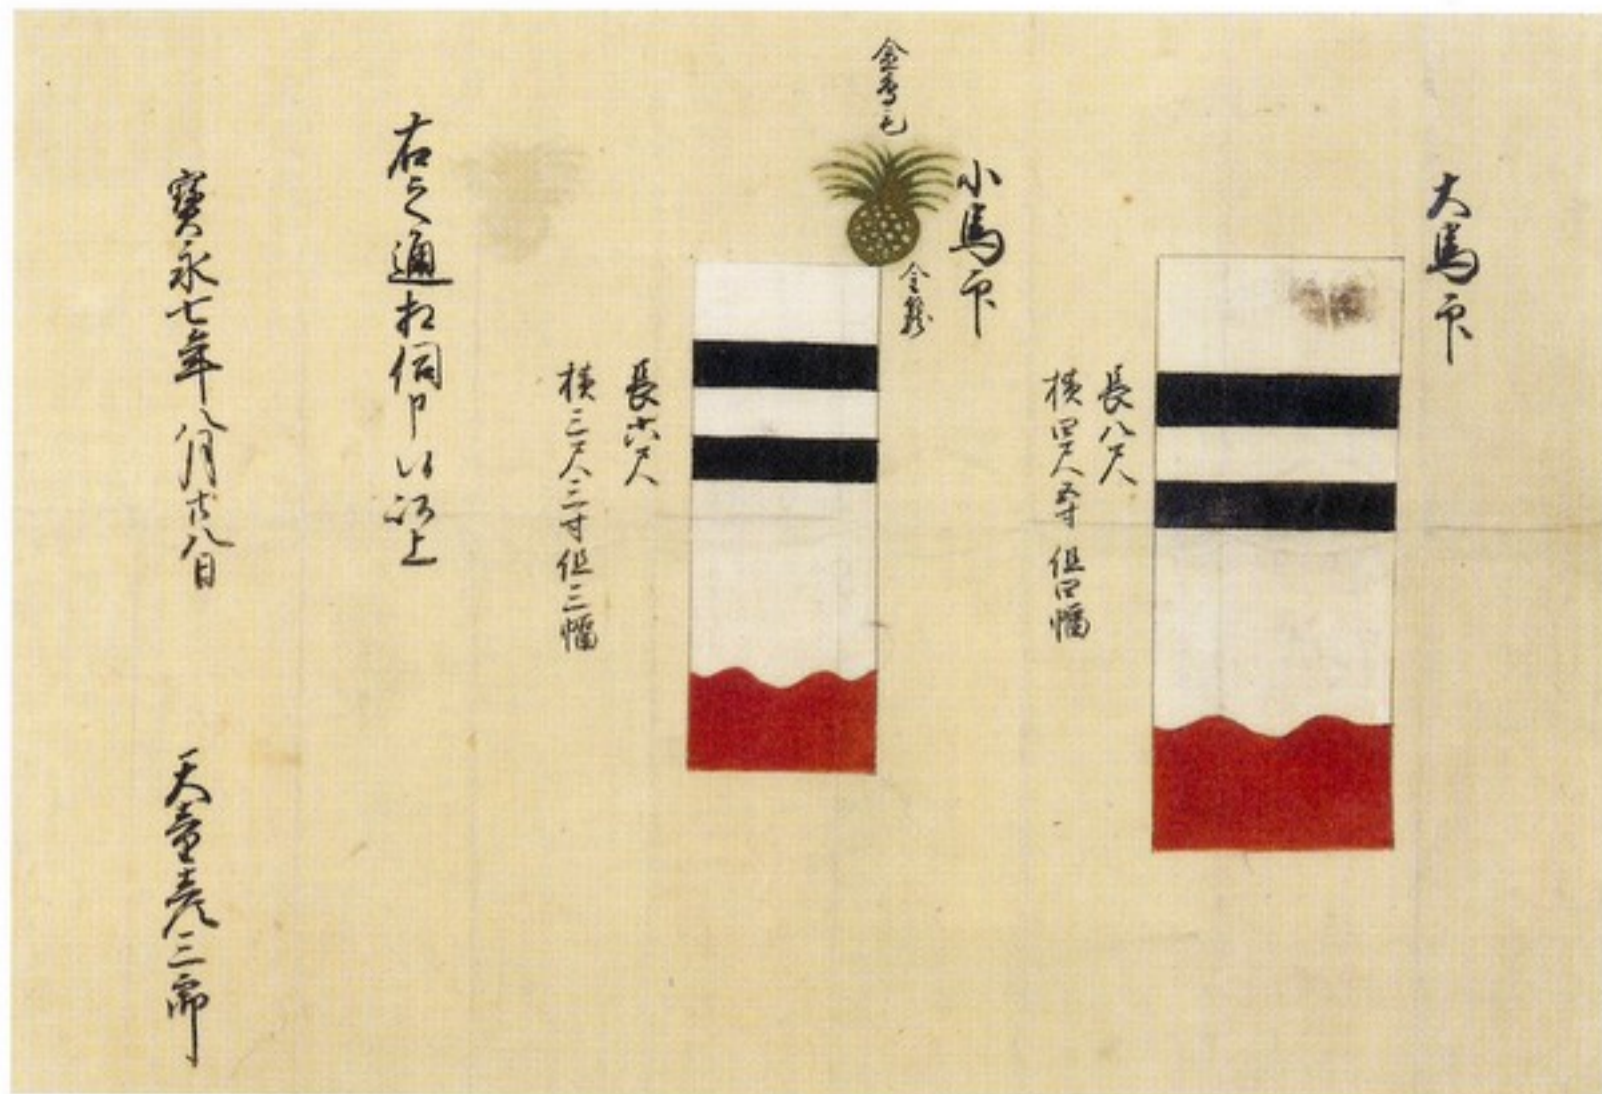 大馬印
長八尺
横四尺五寸 但四幅
小馬印
金鳥毛
長六尺
横三尺三寸但三幅
右之通相伺申候以上
寳永七年八月廿八日
天童彦三郎